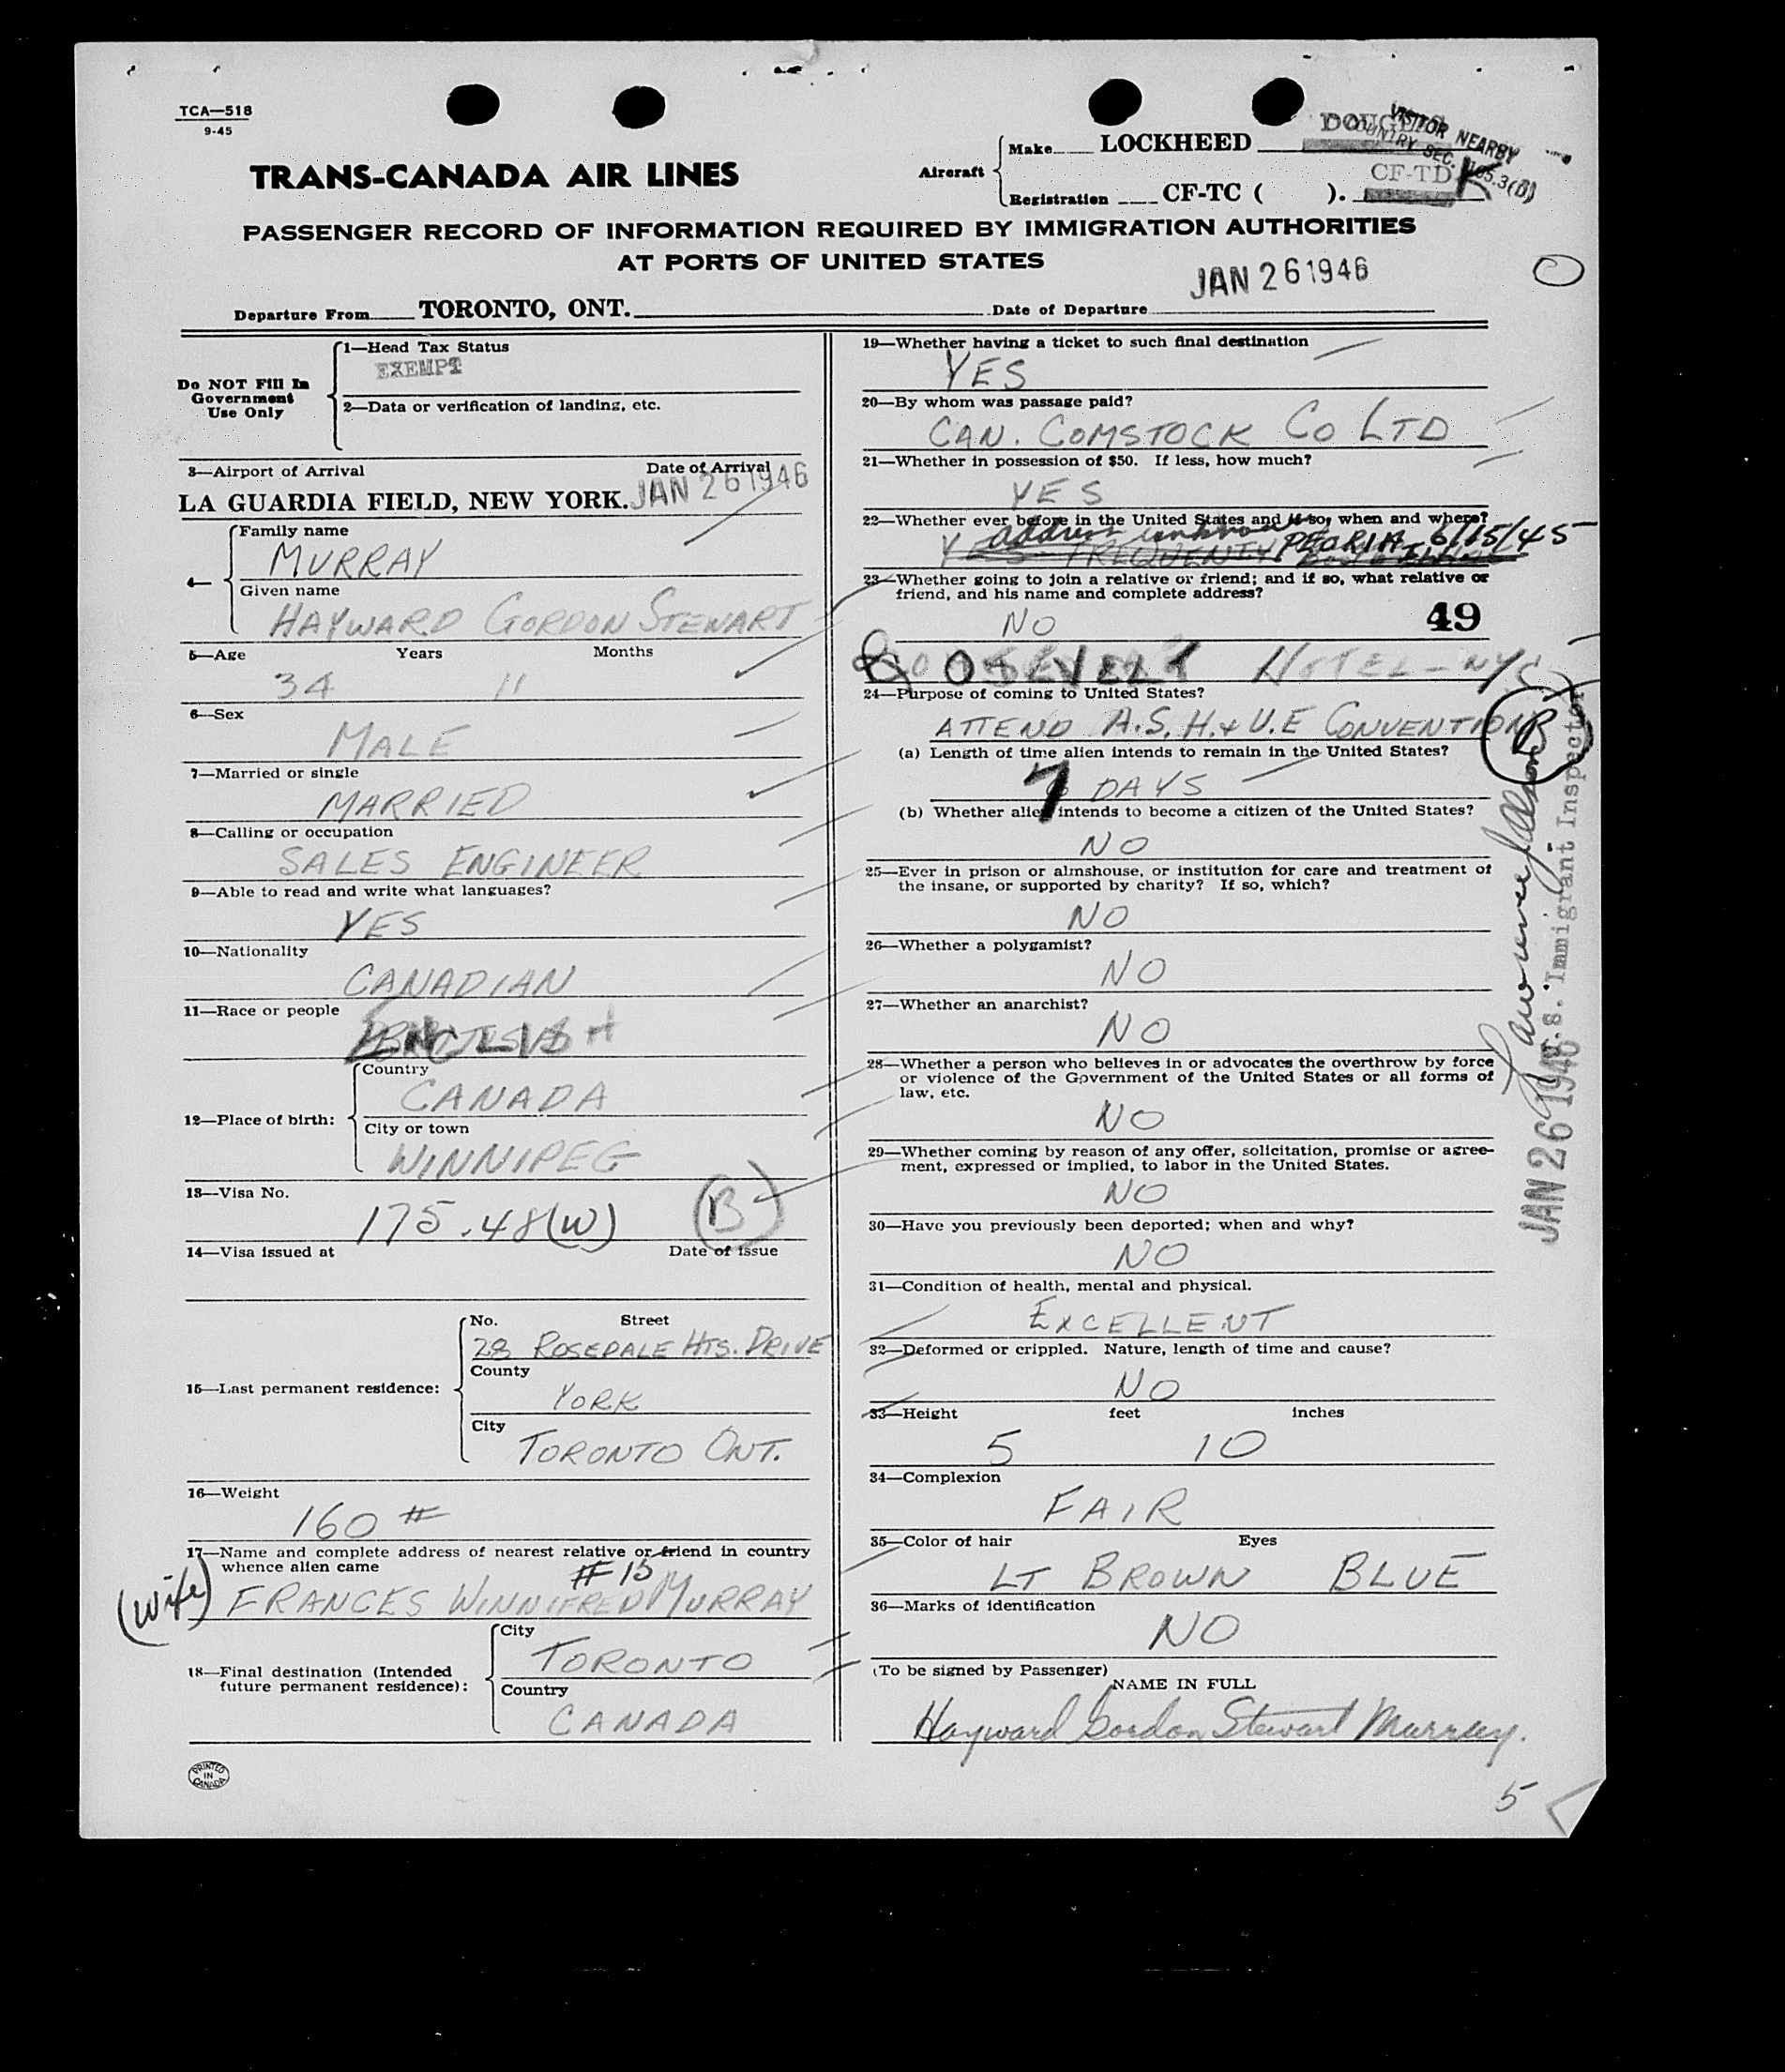 TCA—518
9-45
TRANS-CANADA AIR LINES
Aircraft
Make LOCKHEED
DOUGLAS
VISITOR NEARBY
COUNTRY SEC. 165.3(B)
Registration CF-TC ( ).
CF-TD
PASSENGER RECORD OF INFORMATION REQUIRED BY IMMIGRATION AUTHORITIES
AT PORTS OF UNITED STATES
Departure From TORONTO, ONT.
Date of Departure JAN 26 1946
Do NOT Fill In
Government
Use Only
1—Head Tax Status
EXEMPT
2—Data or verification of landing, etc.
3—Airport of Arrival Date of Arrival
LA GUARDIA FIELD, NEW YORK. JAN 26 1946
4—
Family name
MURRAY
Given name
HAYWARD GORDON STEWART
5—Age Years Months
34 11
6—Sex
MALE
7—Married or single
MARRIED
8—Calling or occupation
SALES ENGINEER
9—Able to read and write what languages?
YES
10—Nationality
CANADIAN
11—Race or people
ENGLISH
12—Place of birth:
Country
CANADA
City or town
WINNIPEG
13—Visa No.
175.48(W) (B)
14—Visa issued at Date of issue
15—Last permanent residence:
No. Street
28 ROSEDALE HTS. DRIVE
County
YORK
City
TORONTO ONT.
16—Weight
160 #
17—Name and complete address of nearest relative or friend in country
whence alien came
#15
(wife) FRANCES WINNIFRED MURRAY
18—Final destination (Intended
future permanent residence):
City
TORONTO
Country
CANADA
PRINTED
IN
CANADA
19—Whether having a ticket to such final destination
YES
20—By whom was passage paid?
CAN. COMSTOCK CO LTD
21—Whether in possession of $50. If less, how much?
YES
22—Whether ever before in the United States and if so, when and where?
address unknown PEORIA 6/15/45
FREQUENTLY
23—Whether going to join a relative or friend; and if so, what relative or
friend, and his name and complete address?
NO 49
ROOSEVELT HOTEL - NYC
24—Purpose of coming to United States?
ATTEND A.S.H.&V.E CONVENTION
(B)
(a) Length of time alien intends to remain in the United States?
7 DAYS
(b) Whether alien intends to become a citizen of the United States?
NO
25—Ever in prison or almshouse, or institution for care and treatment of
the insane, or supported by charity? If so, which?
NO
26—Whether a polygamist?
NO
27—Whether an anarchist?
NO
28—Whether a person who believes in or advocates the overthrow by force
or violence of the Government of the United States or all forms of
law, etc.
NO
29—Whether coming by reason of any offer, solicitation, promise or agree-
ment, expressed or implied, to labor in the United States.
NO
30—Have you previously been deported; when and why?
NO
31—Condition of health, mental and physical.
EXCELLENT
32—Deformed or crippled. Nature, length of time and cause?
NO
33—Height feet inches
5 10
34—Complexion
FAIR
35—Color of hair Eyes
LT BROWN BLUE
36—Marks of identification
NO
(To be signed by Passenger)
NAME IN FULL
Hayward Gordon Stewart Murray.
5
Lawrence
U.S. Immigrant Inspector
JAN 26 1946